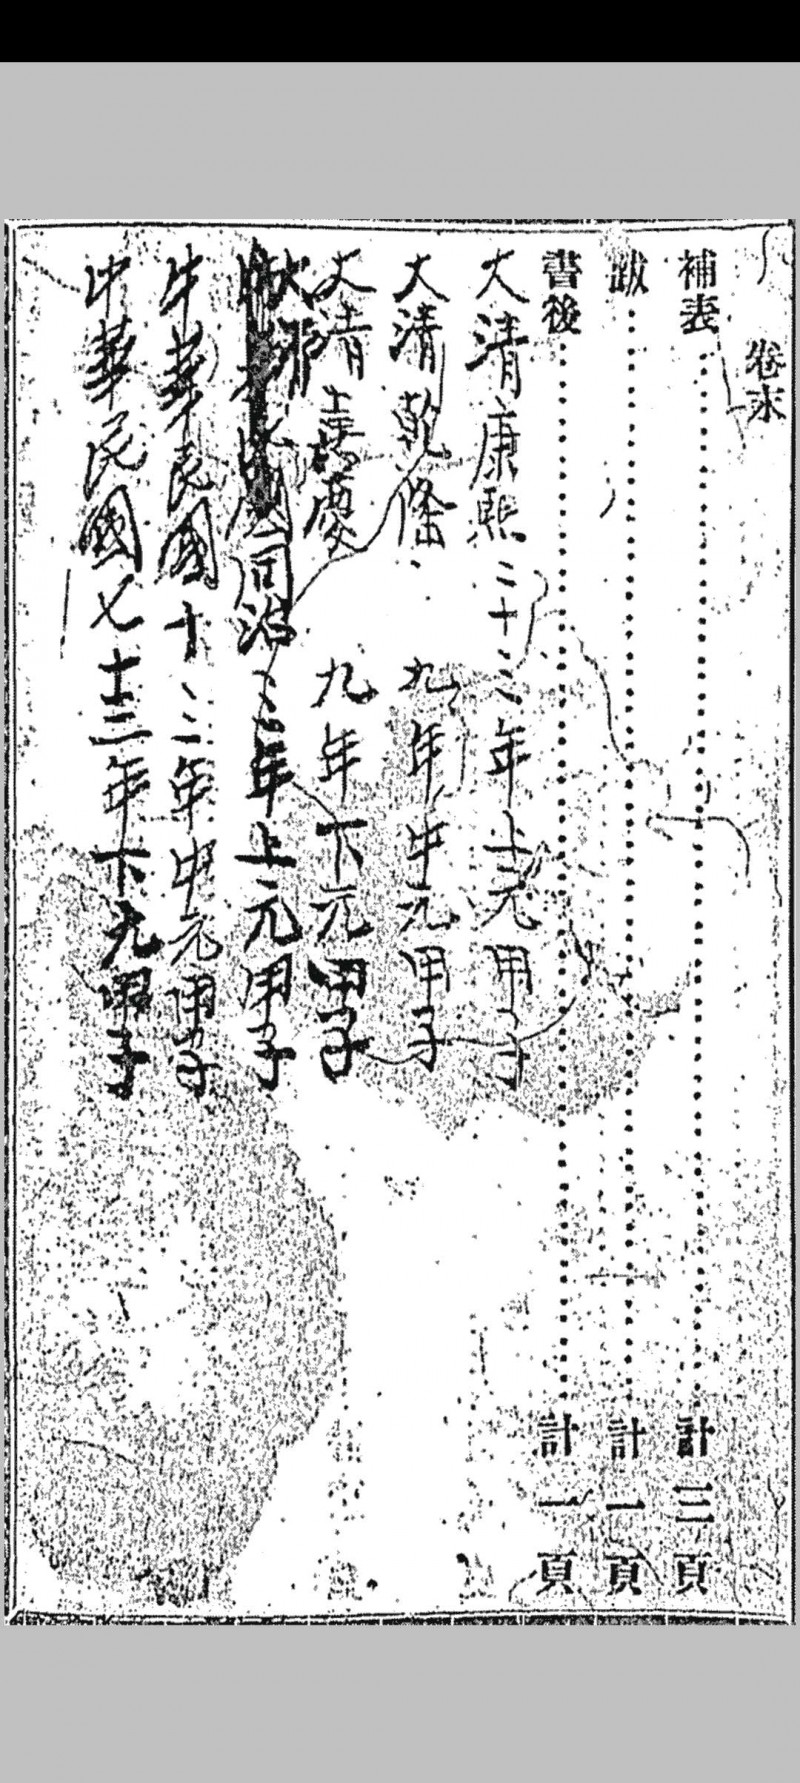 卷末
補表……計三頁
跋……計一頁
書後……計一頁
大清康熙二十三年上元甲子
大清乾隆九年中元甲子
大清嘉慶九年下元甲子
同治三年上元甲子
中華民國十三年中元甲子
中華民國七十三年下元甲子